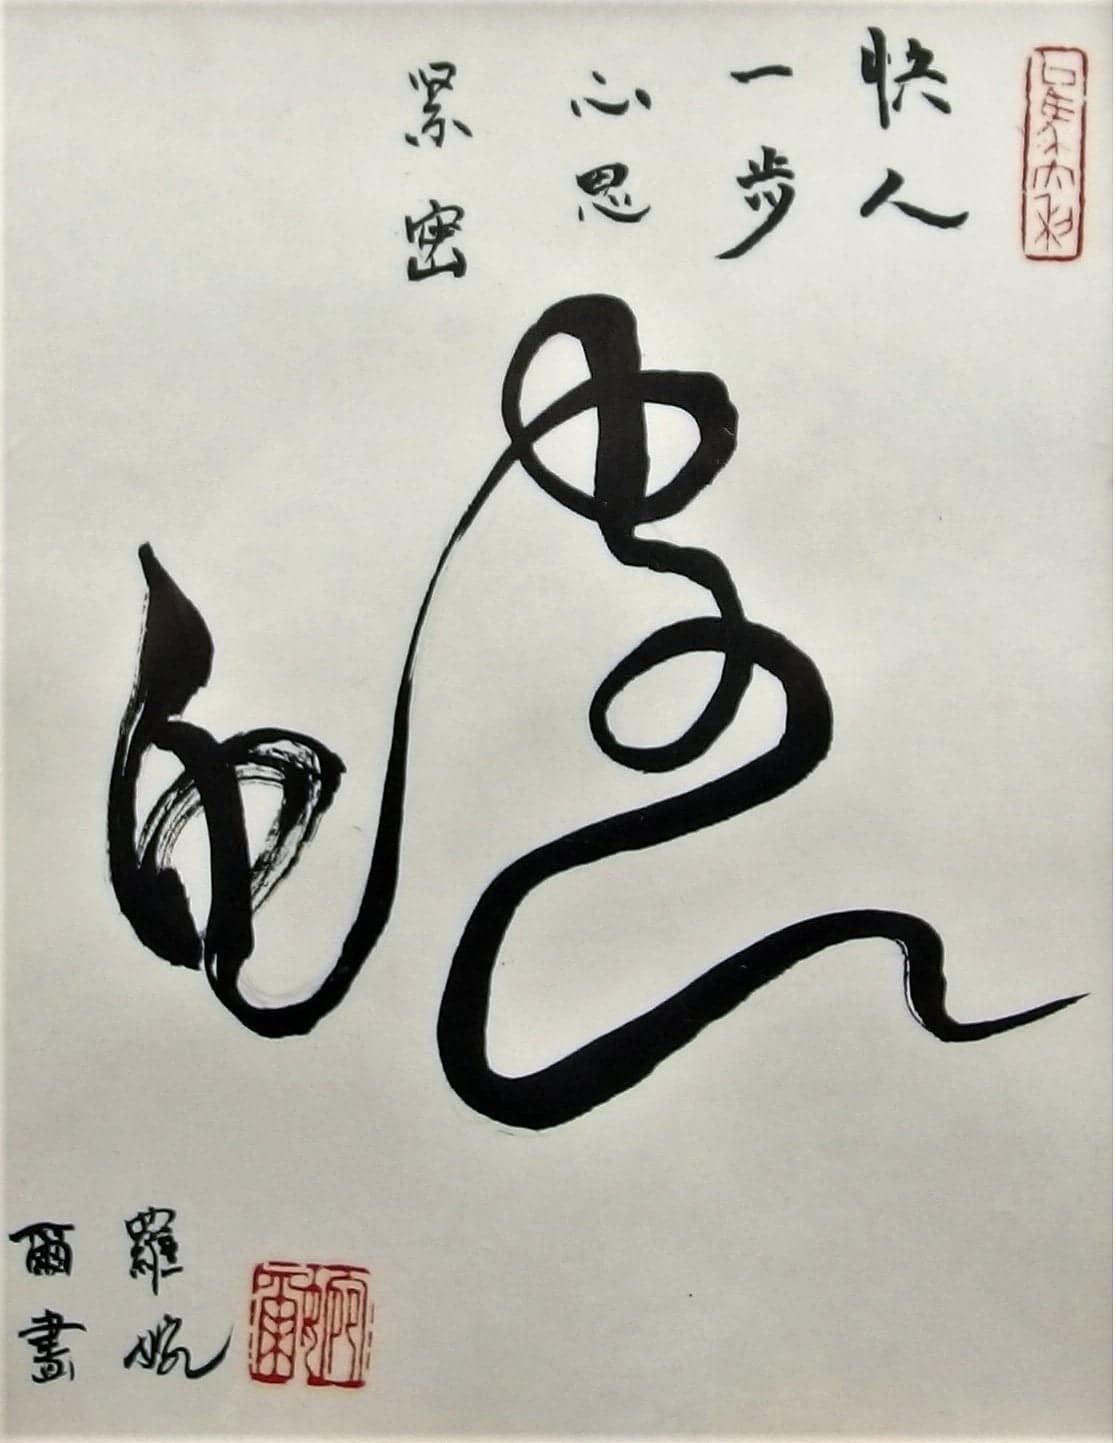 快人
一步
心思
緊密
聰
羅婉
爾畫